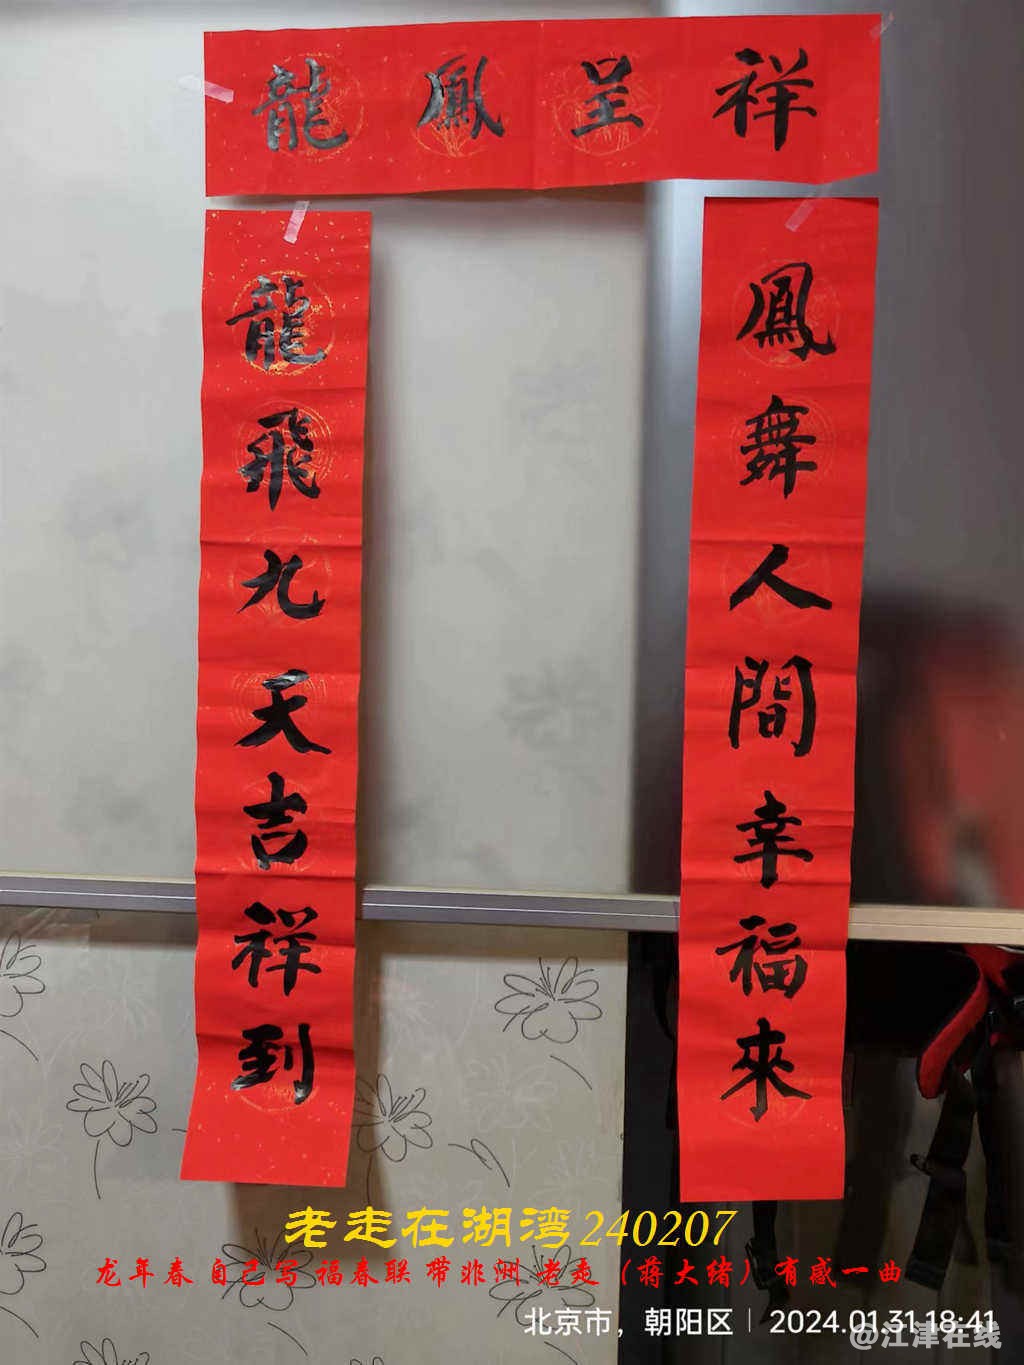 龍鳳呈祥
龍飛九天吉祥到
鳳舞人間幸福來
老走在湖湾240207
龙年春 自己写 福春联 带非洲 老走（蒋大绪）有感一曲
北京市，朝阳区 | 2024.01.31 18:41
@江津在线